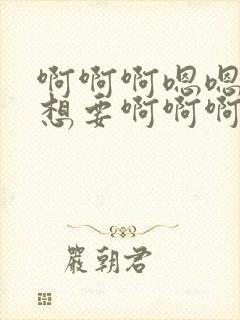 啊啊啊嗯嗯
想要啊啊啊
嚴朝君